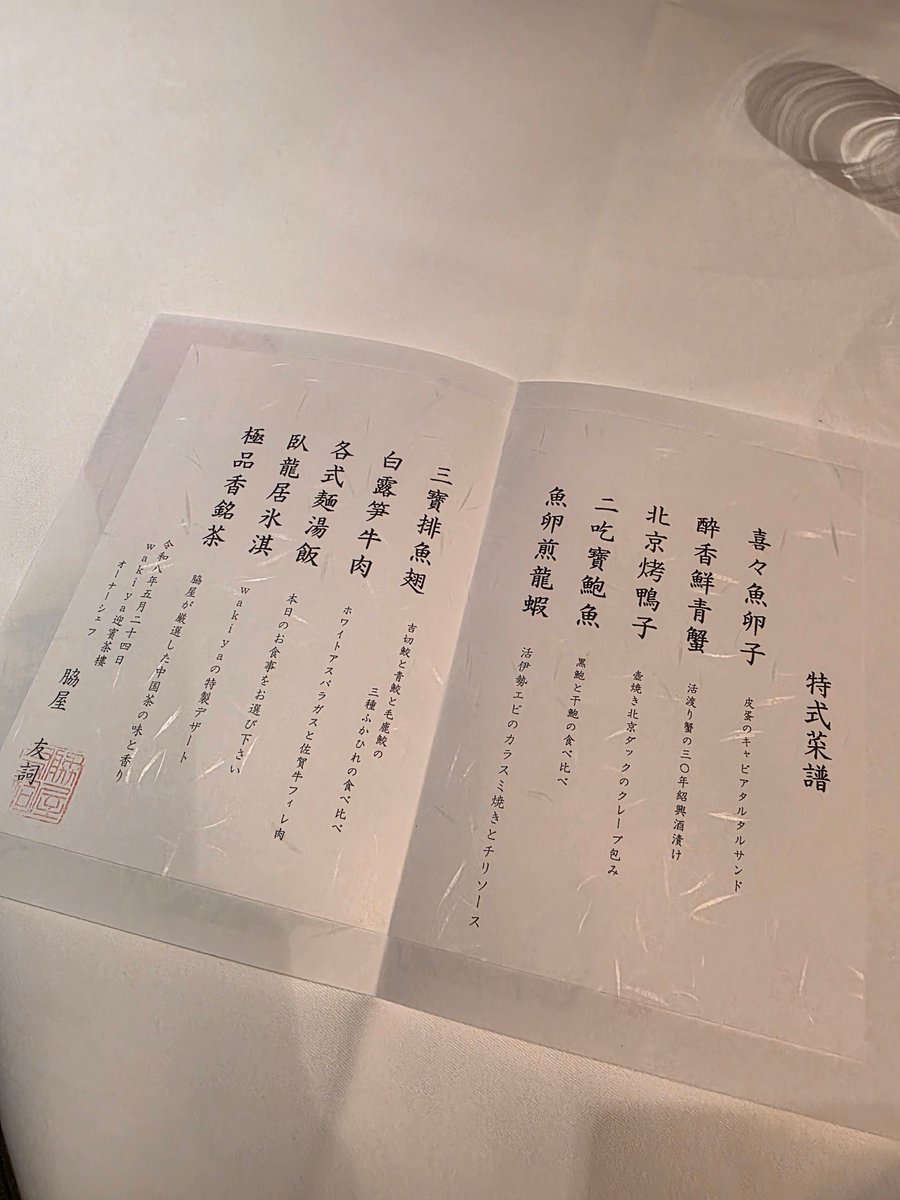 特式菜譜
喜々魚卵子
皮蛋のキャビアタルタルサンド
醉香鮮青蟹
活渡り蟹の三〇年紹興酒漬け
北京烤鴨子
壺焼き北京ダックのクレープ包み
二吃寶鮑魚
黒鮑と干鮑の食べ比べ
魚卵煎龍蝦
活伊勢エビのカラスミ焼きとチリソース
三寶排魚翅
吉切鮫と青鮫と毛鹿鮫の
三種ふかひれの食べ比べ
白露笋牛肉
ホワイトアスパラガスと佐賀牛フィレ肉
各式麵湯飯
本日のお食事をお選び下さい
臥龍居氷淇
wakiyaの特製デザート
極品香銘茶
脇屋が厳選した中国茶の味と香り
令和八年五月二十四日
wakiya迎賓茶樓
オーナーシェフ
脇屋 友詞